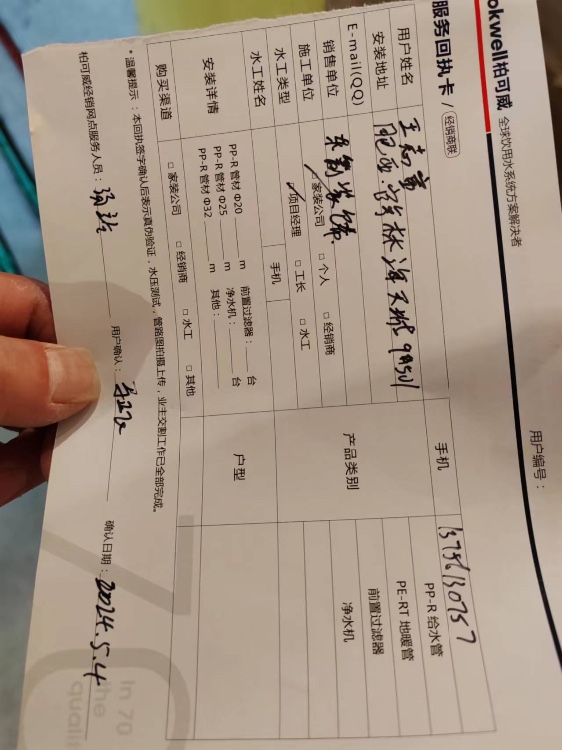 okwell柏可威 全球饮用水系统方案解决者
服务回执卡 / 经销商联
用户编号：
用户姓名 王志富 手机 13736130757
安装地址
E-mail(QQ) 产品类别 PP-R 给水管
销售单位 装饰 PE-RT 地暖管
施工单位 ☑家装公司 □ 个人 □ 经销商 前置过滤器
水工类型 ☑项目经理 □ 工长 □ 水工 净水机
水工姓名 手机
安装详情 PP-R 管材 Φ20 m 前置过滤器： 台 户型
PP-R 管材 Φ25 m 净水机： 台
PP-R 管材 Φ32 m 其他：
购买渠道 □ 家装公司 □ 经销商 □ 水工 □ 其他
* 温馨提示：本回执签字确认后表示真伪验证，水压测试，管路图拍摄上传，业主交割工作已全部完成。
柏可威经销网点服务人员： 用户确认： 确认日期：2024.5.4
In 70
the
quali